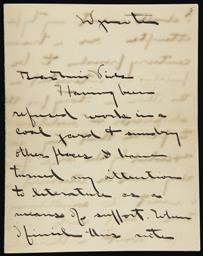 Dear Miss Viele
Having been
refused work in a
coal yard & sundry
other places I have
turned my attention
to literature as a
means of support. When
I finish this note